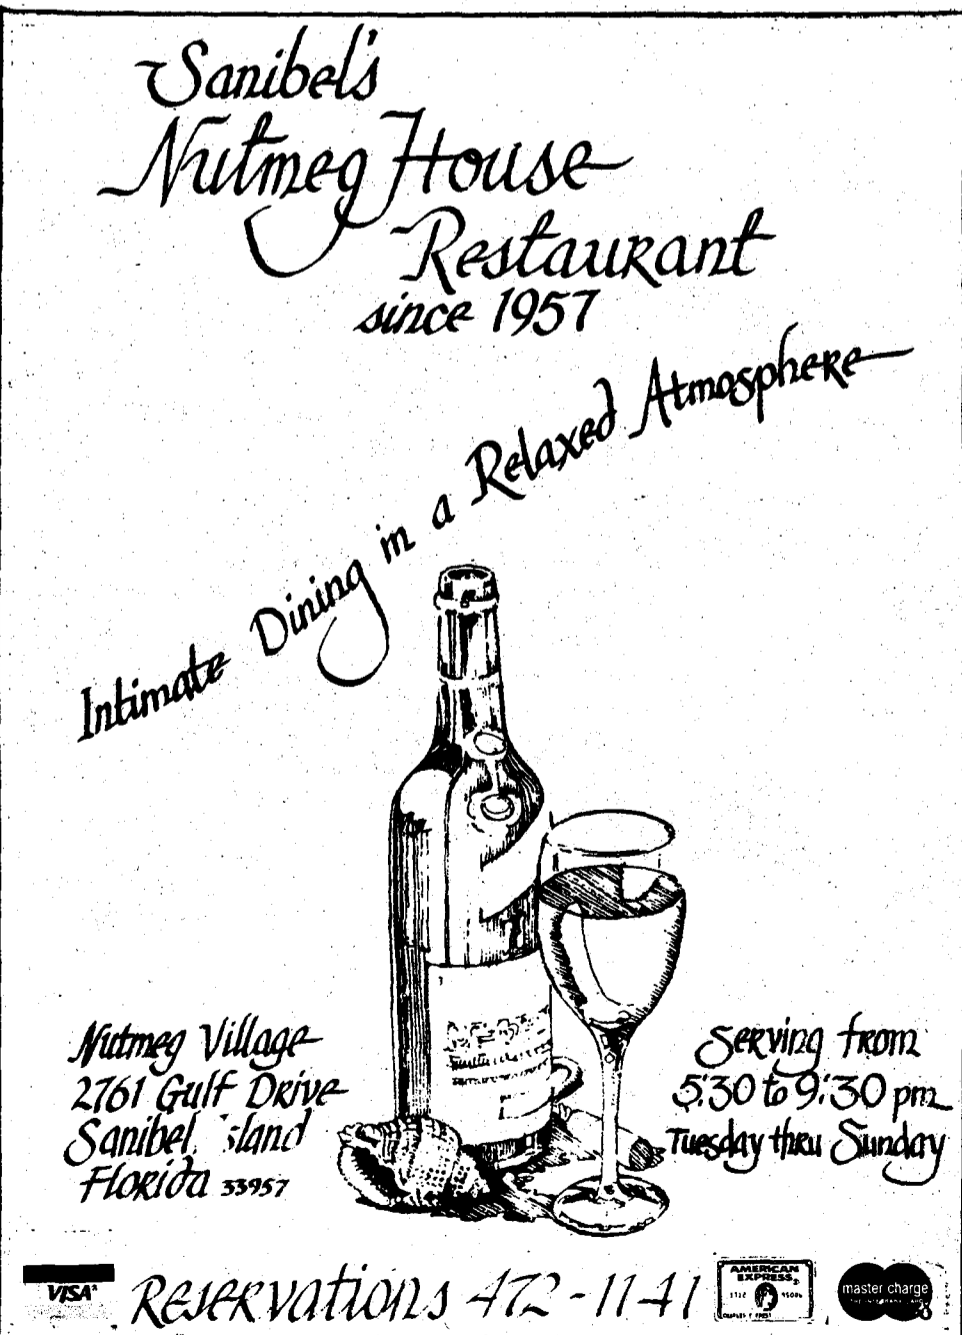 Sanibel's
Nutmeg House
Restaurant
since 1957
Intimate Dining in a Relaxed Atmosphere
Nutmeg Village
2761 Gulf Drive
Sanibel Island
Florida 33957
Serving from
5:30 to 9:30 pm
Tuesday thru Sunday
VISA
Reservations 472-1141
AMERICAN
EXPRESS
master charge